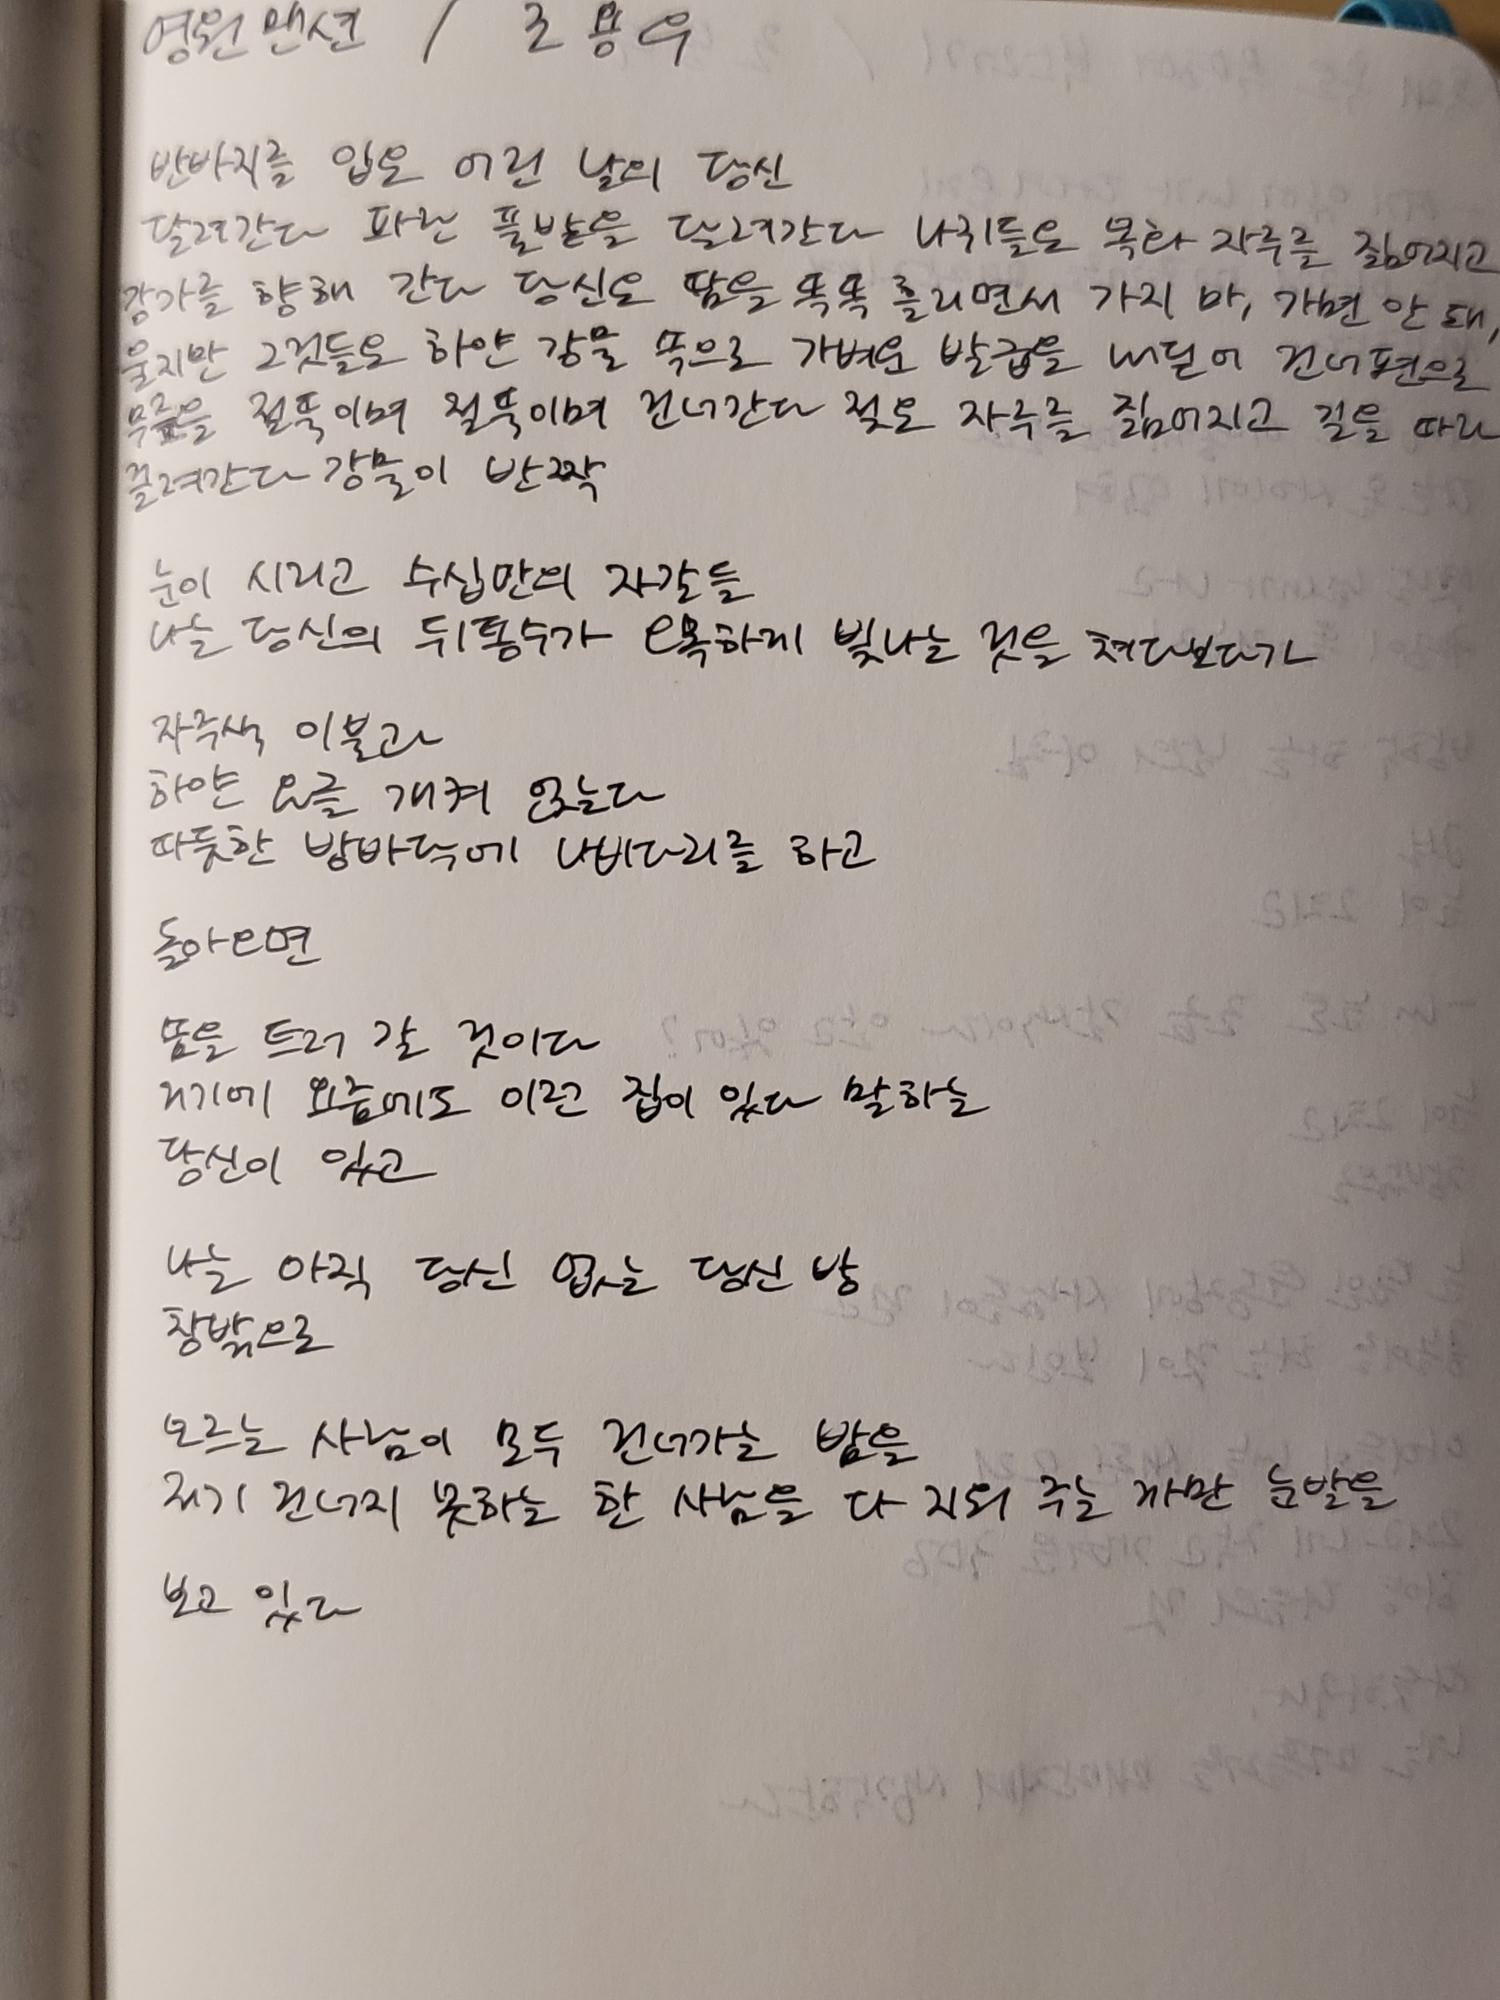 영원맨션 / 조용우
반바지를 입은 어린 날의 당신
달려간다 파란 풀밭을 달려간다 나귀들은 목화 자루를 짊어지고
강가를 향해 간다 당신은 땀을 뚝뚝 흘리면서 가지 마, 가면 안 돼,
울지만 그것들은 하얀 강물 쪽으로 가벼운 발굽을 내딛어 건너편으로
무릎을 절뚝이며 절뚝이며 건너간다 젖은 자루를 짊어지고 길을 따라
끌려간다 강물이 반짝
눈이 시리고 수십만의 자갈들
나는 당신의 뒤통수가 오목하게 빛나는 것을 쳐다보다가
자주색 이불과
하얀 요를 개켜 얹는다
따뜻한 방바닥에 나비다리를 하고
돌아오면
뜸을 뜨러 갈 것이다
거기에 요즘에도 이런 집이 있다 말하는
당신이 있고
나는 아직 당신 없는 당신 방
창밖으로
모르는 사람이 모두 건너가는 밤을
저기 건너지 못하는 한 사람을 다 지워 주는 까만 눈발을
보고 있다